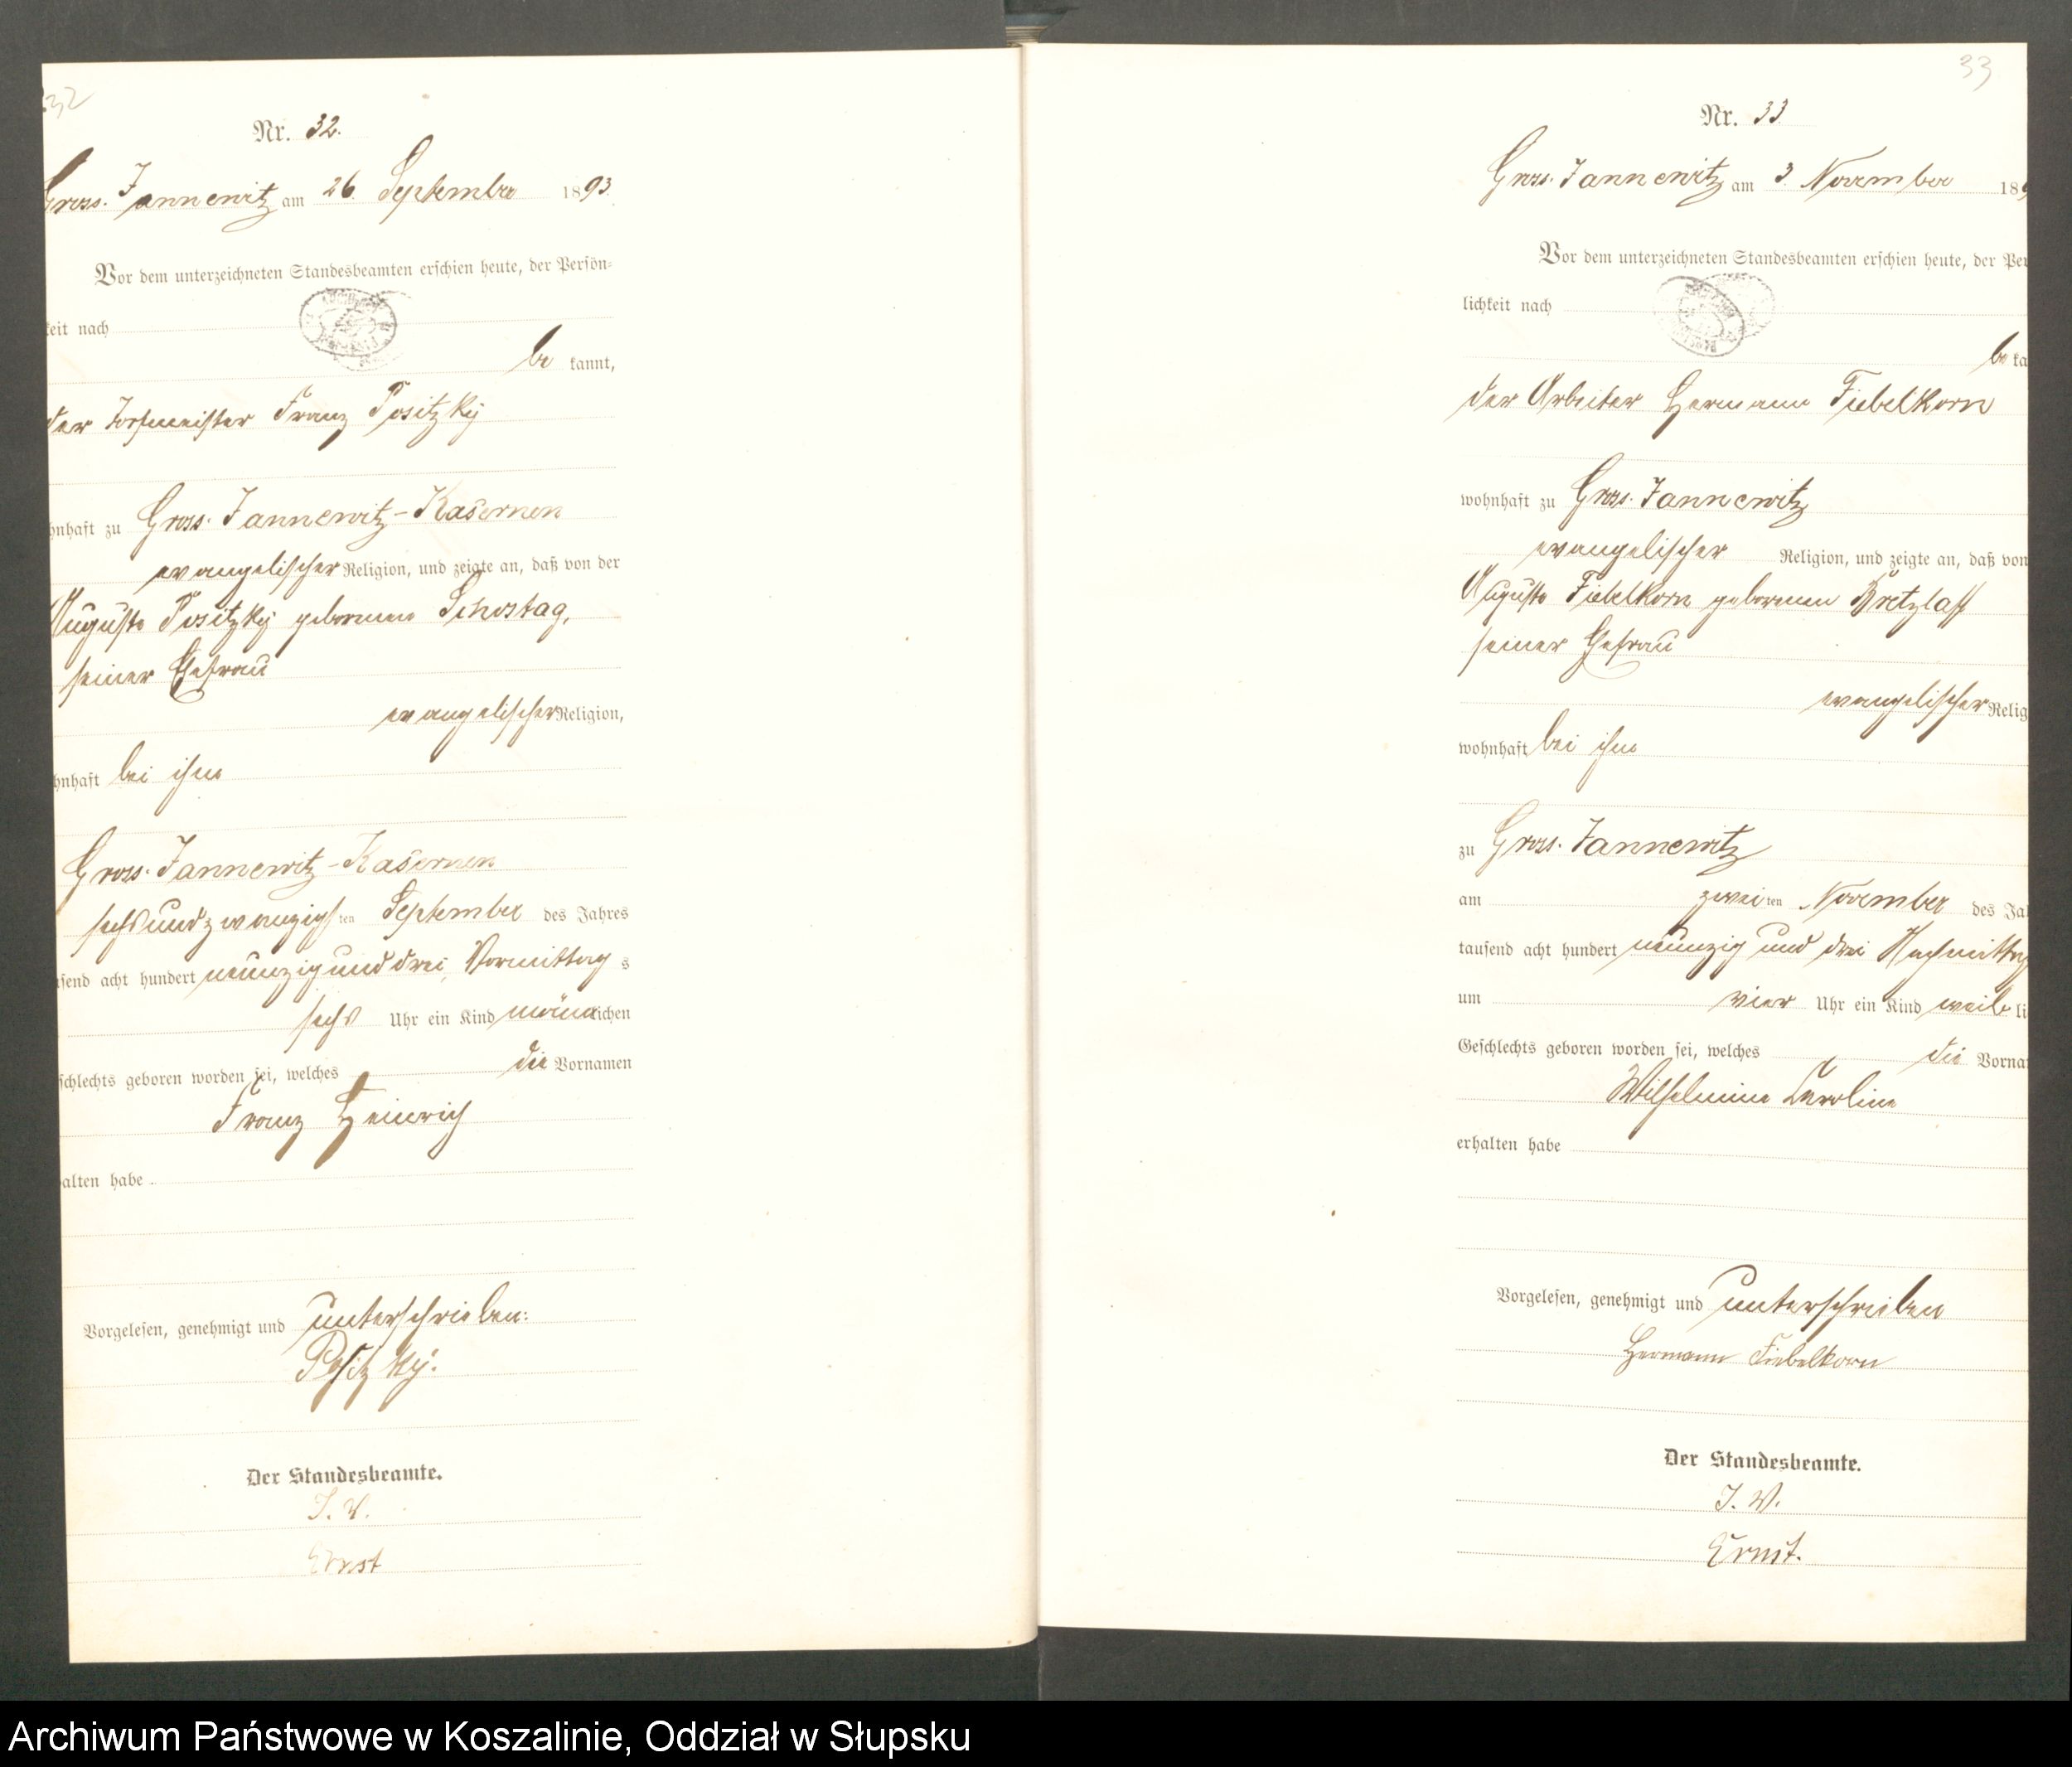 32
Nr. 32.
Gross. Jannewitz am 26. September 1893.
Vor dem unterzeichneten Standesbeamten erschien heute, der Persön-
keit nach
be kannt,
der Torfmeister Franz Positzky
hnhaft zu Gross. Jannewitz-Kasernen
evangelischer Religion, und zeigte an, daß von der
Auguste Positzky geborenen Schostag,
seiner Ehefrau
evangelischer Religion,
hnhaft bei ihm
Gross. Jannewitz-Kasernen
sechsundzwanzigsten September des Jahres
usend acht hundert neunzig und drei, Vormittags
sechs Uhr ein Kind männlichen
schlechts geboren worden sei, welches die Vornamen
Franz Heinrich
alten habe
Vorgelesen, genehmigt und unterschrieben:
Positzky.
Der Standesbeamte.
I. V.
Ernst
33
Nr. 33
Gross. Jannewitz am 3. November 189
Vor dem unterzeichneten Standesbeamten erschien heute, der Per
lichkeit nach
be ka
der Arbeiter Hermann Fiebelkorn
wohnhaft zu Gross. Jannewitz
evangelischer Religion, und zeigte an, daß von
Auguste Fiebelkorn geborenen Kretzlaff
seiner Ehefrau
evangelischer Relig
wohnhaft bei ihm
zu Gross. Jannewitz
am zweiten November des Jah
tausend acht hundert neunzig und drei Nachmittag
um vier Uhr ein Kind weibli
Geschlechts geboren worden sei, welches die Vorna
Wilhelmine Caroline
erhalten habe
Vorgelesen, genehmigt und unterschrieben
Hermann Fiebelkorn
Der Standesbeamte.
I. V.
Ernst.
Archiwum Państwowe w Koszalinie, Oddział w Słupsku